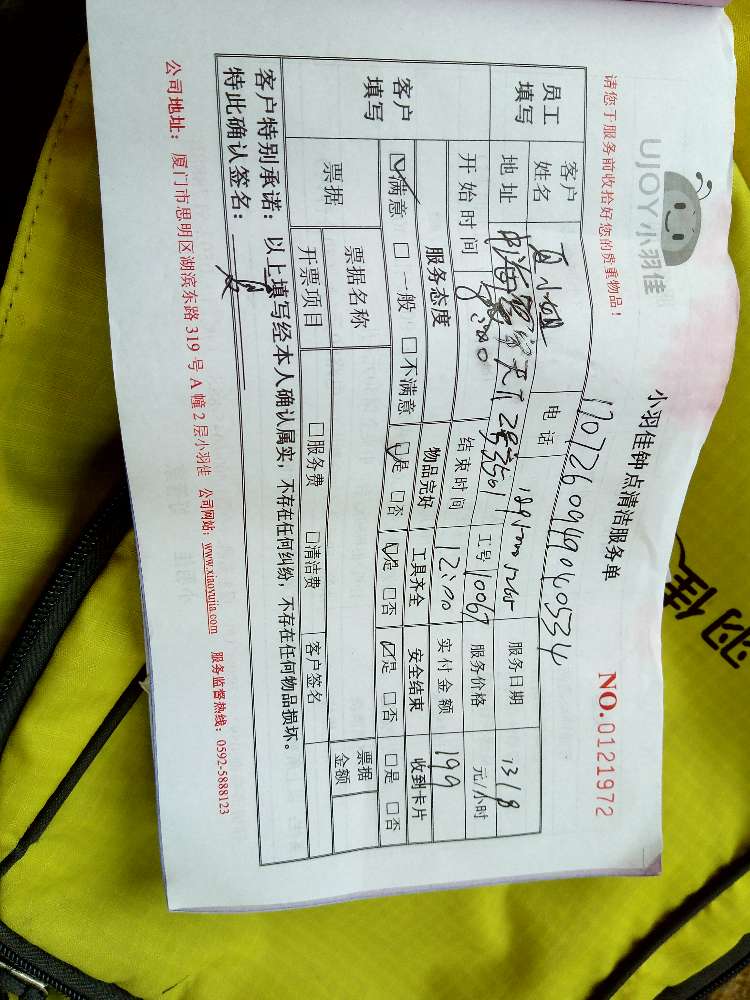 请您于服务前收拾好您的贵重物品！
UJOY 小羽佳
小羽佳钟点清洁服务单
NO.0121972
1707260949040534
员工填写
客户姓名 夏小姐 电话 服务日期 13/8
地址 中海 天下 28# 3501 工号 10067 服务价格 元/小时
开始时间 8:00 结束时间 12:00 实付金额 199
客户填写
服务态度 物品完好 工具齐全 安全结束 收到卡片
☑满意 □一般 □不满意 ☑是 □否 ☑是 □否 ☑是 □否 □是 □否
票据 票据名称 客户签名 票据金额
开票项目 □服务费 □清洁费
客户特别承诺：以上填写经本人确认属实，不存在任何纠纷，不存在任何物品损坏。
特此确认签名：夏
公司地址：厦门市思明区湖滨东路 319 号 A 幢 2 层小羽佳 公司网站：www.xiaoyujia.com 服务监督热线：0592-5888123
羽佳